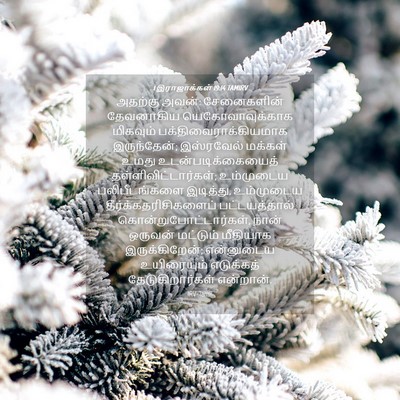 1 இராஜாக்கள் 19:14 TAMIRV
அதற்கு அவன்: சேனைகளின்
தேவனாகிய யெகோவாவுக்காக
மிகவும் பக்திவைராக்கியமாக
இருந்தேன்; இஸ்ரவேல் மக்கள்
உமது உடன்படிக்கையைத்
தள்ளிவிட்டார்கள்; உம்முடைய
பலிபீடங்களை இடித்து, உம்முடைய
தீர்க்கதரிசிகளைப் பட்டயத்தால்
கொன்றுபோட்டார்கள், நான்
ஒருவன் மட்டும் மீதியாக
இருக்கிறேன்; என்னுடைய
உயிரையும் எடுக்கத்
தேடுகிறார்கள் என்றான்.